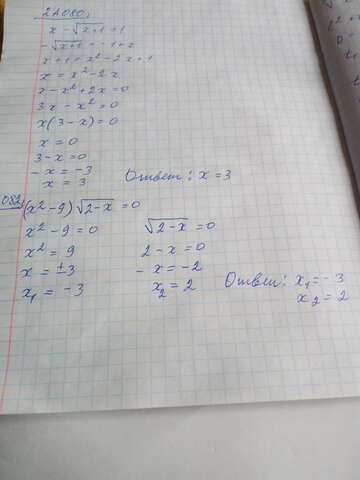 2A080.
x - √x+1 = 1
-√x+1 = -1+x
x+1 = x² - 2x + 1
x = x² - 2x
x - x² + 2x = 0
3x - x² = 0
x(3 - x) = 0
x = 0
3 - x = 0
- x = -3
x = 3 Ответ: x = 3
082. (x² - 9) √2-x = 0
x² - 9 = 0 √2-x = 0
x² = 9 2 - x = 0
x = ±3 - x = -2 Ответ: x₁ = -3
x₁ = -3 x₂ = 2 x₂ = 2